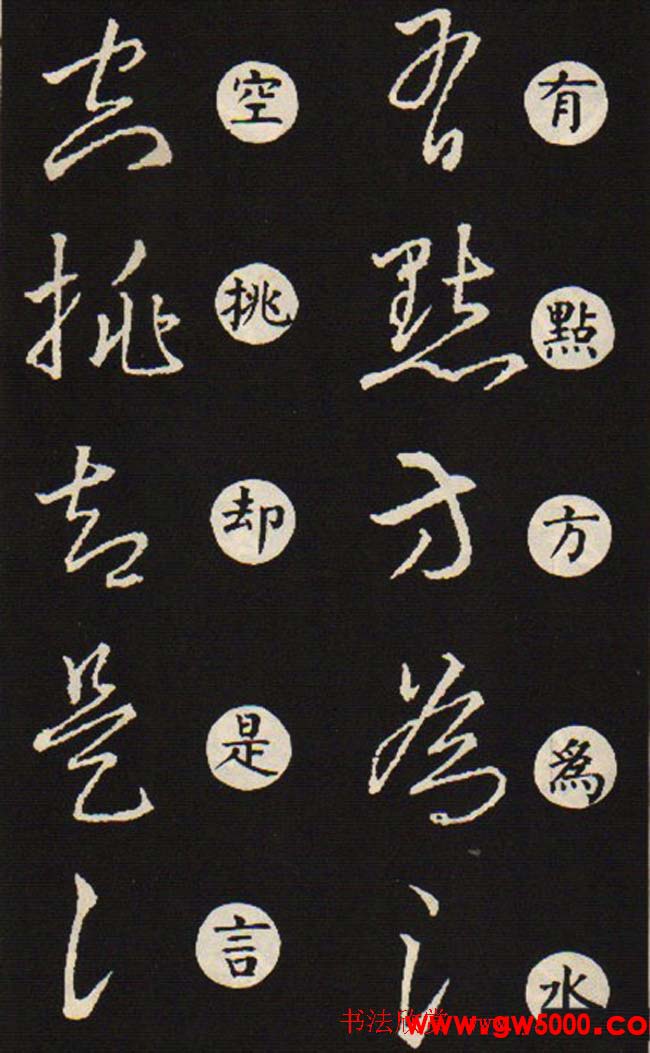 有點方為水
空挑却是言
书法欣赏 www.gw5000.co